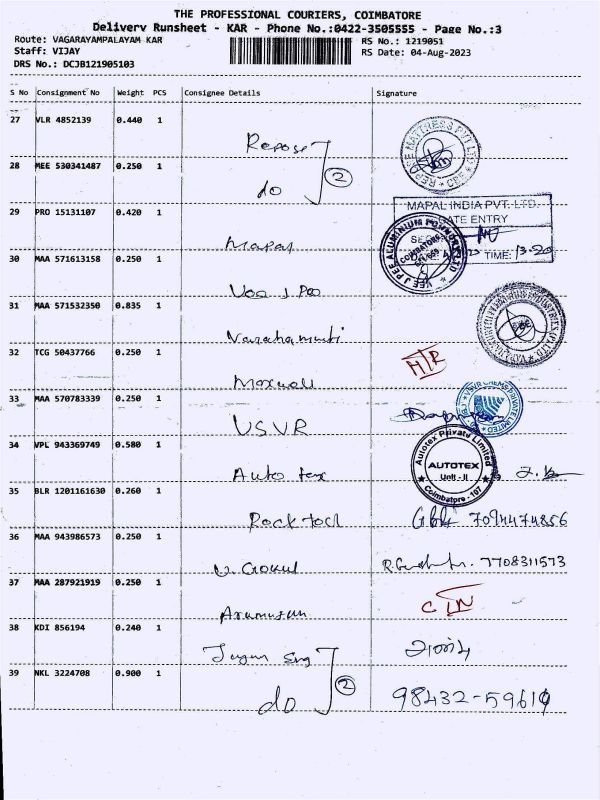 THE PROFESSIONAL COURIERS, COIMBATORE
Delivery Runsheet - KAR - Phone No.:0422-3505555 - Page No.:3
Route: VAGARAYAMPALAYAM KAR
RS No.: 1219051
Staff: VIJAY
RS Date: 04-Aug-2023
DRS No.: DCJB121905103
S No Consignment No Weight PCS Consignee Details Signature
27 VLR 4852139 0.440 1
Repose
REPOSE MATTRESS PVT LTD
28 MEE 530341487 0.250 1
do 2
29 PRO 15131107 0.420 1
MAPAL INDIA PVT. LTD.
GATE ENTRY
TIME: 13-20
Mapal
VEE J PEE ALUMINIUM FOUNDRY (P) LTD
COIMBATORE
30 MAA 571613158 0.250 1
Vee J Pee
31 MAA 571532350 0.835 1
Varahamurti
32 TCG 50437766 0.250 1
HTR
33 MAA 570783339 0.250 1
VSVR
34 VPL 943369749 0.580 1
Auto tex
Autotex Private Limited
AUTOTEX
Unit - II
Coimbatore - 107
35 BLR 1201161630 0.260 1
Rock Tech
7094474856
36 MAA 943986573 0.250 1
V. Gokul
7708311573
37 MAA 287921919 0.250 1
Arumugam
CTN
38 KDI 856194 0.240 1
39 NKL 3224708 0.900 1
do 2
98432-59619